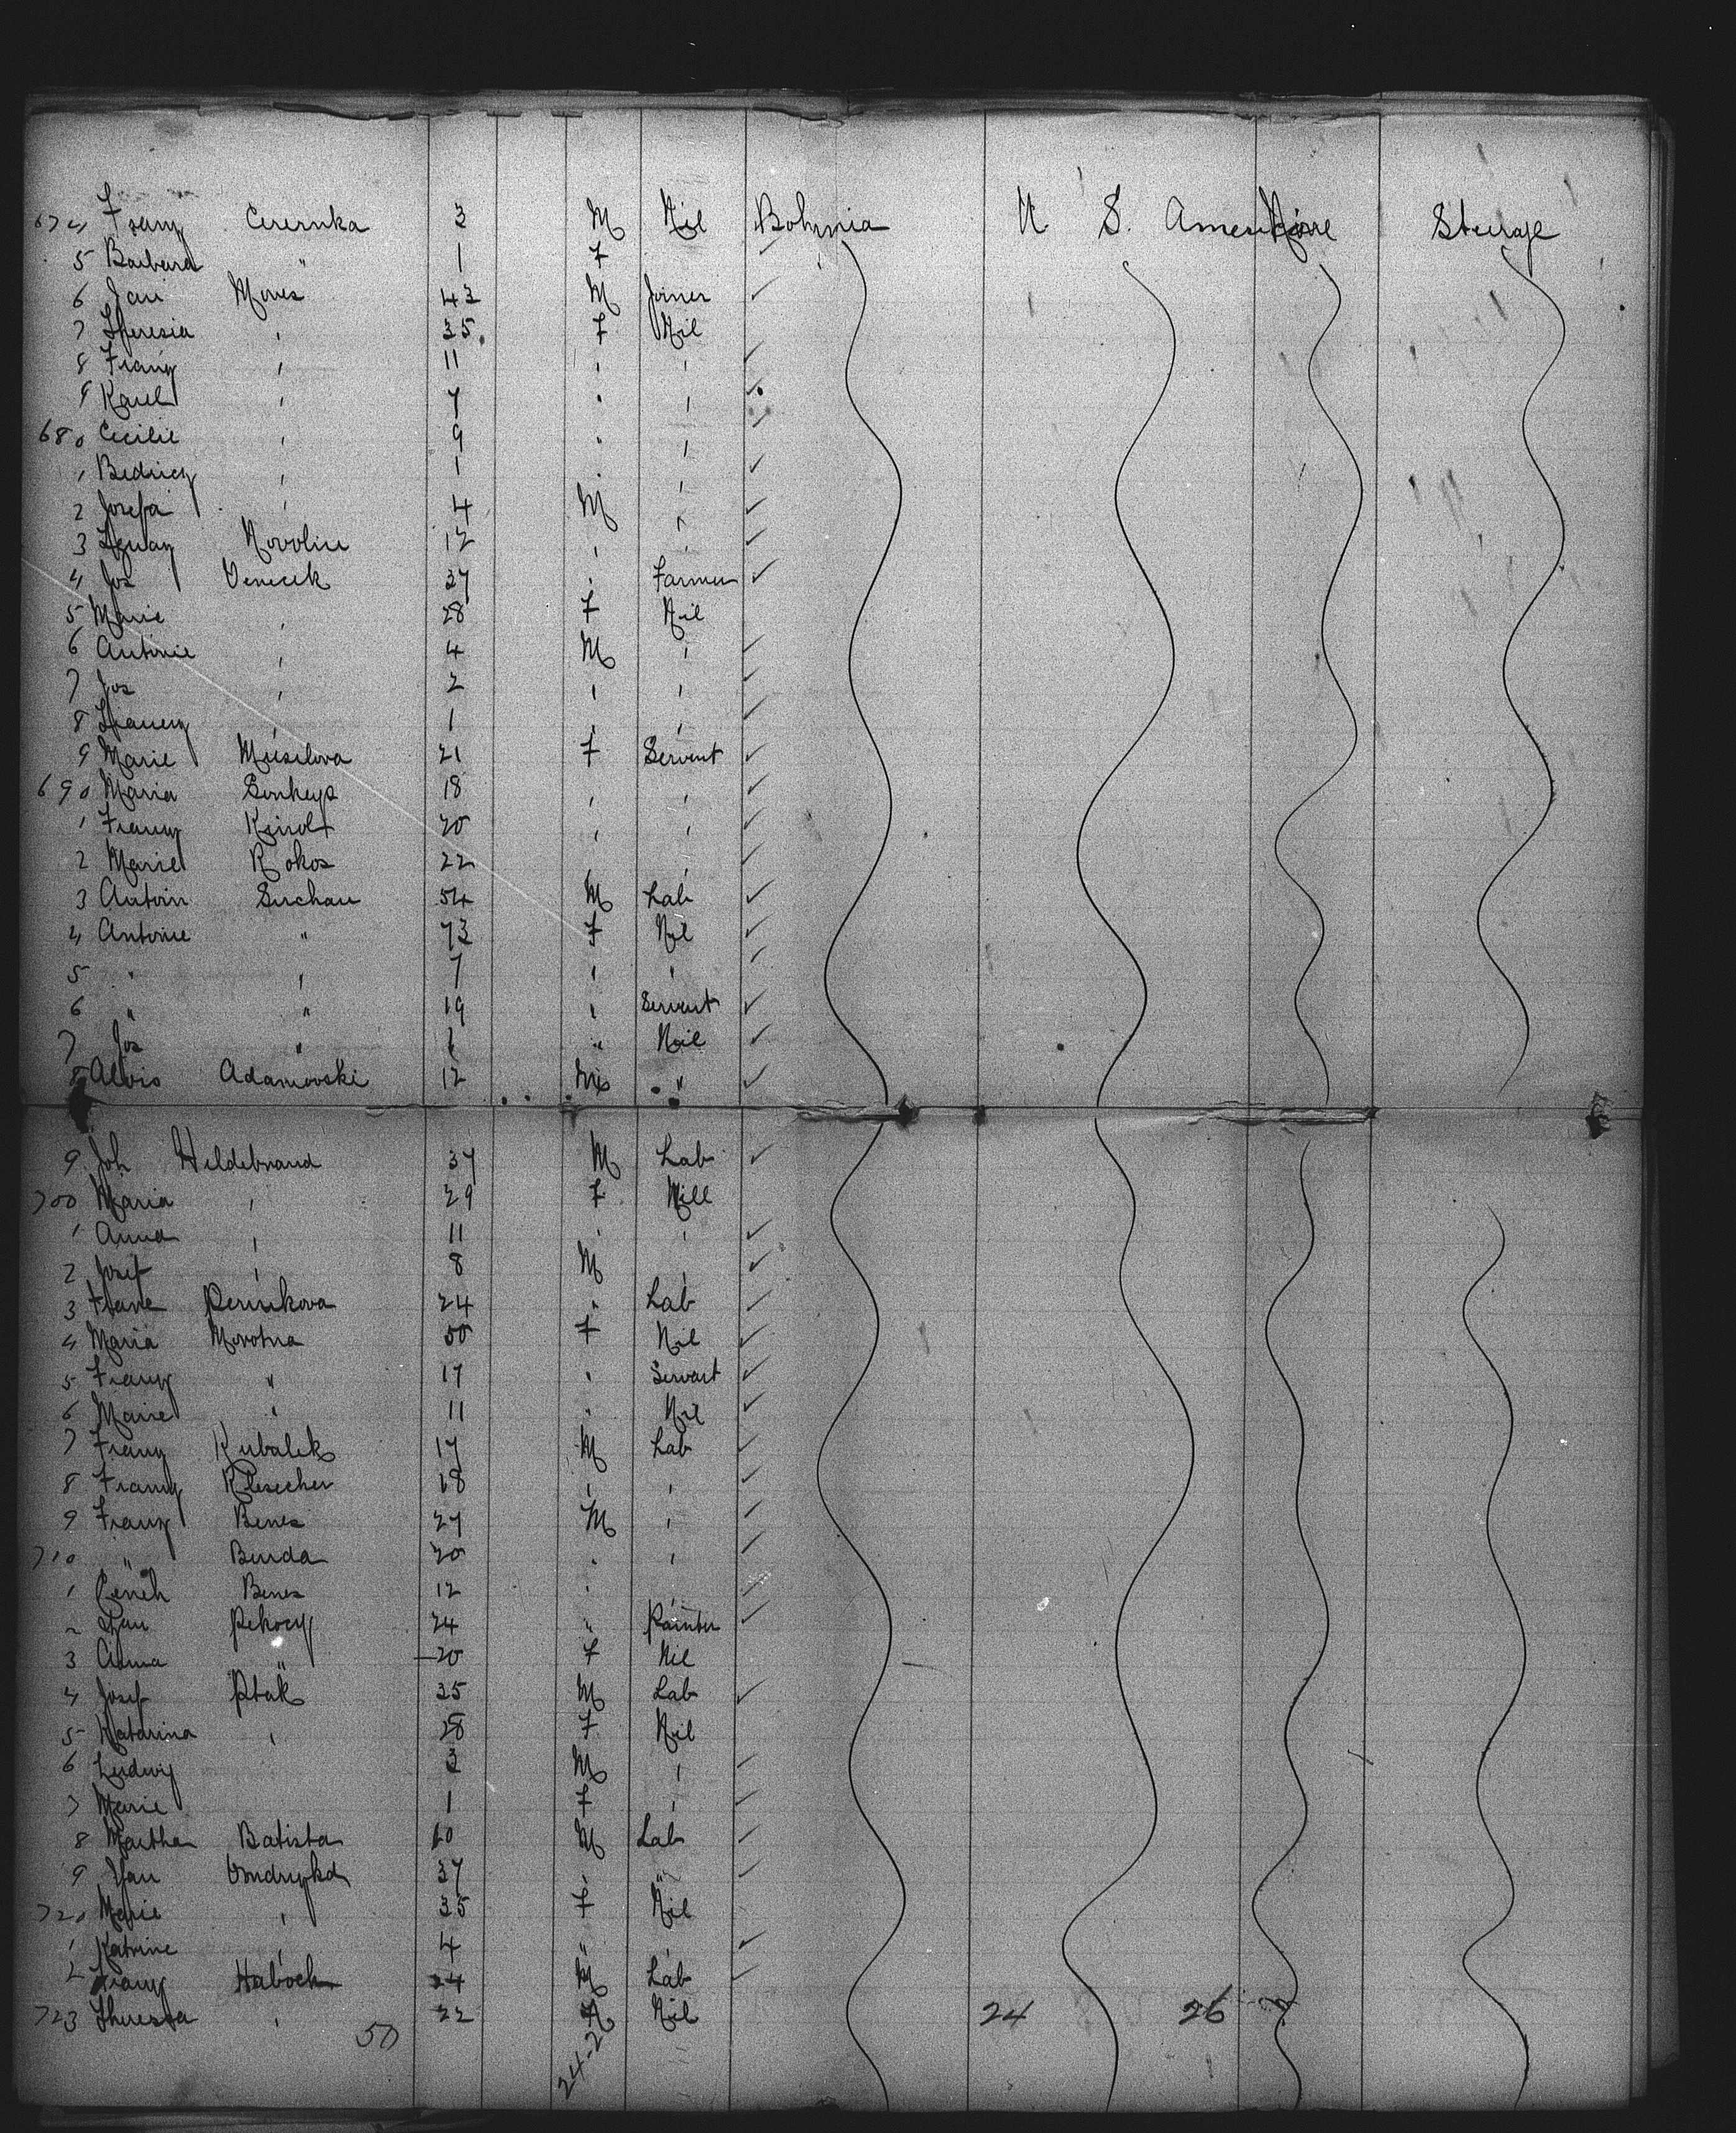 674 Franz Cerernka 3 M Nil Bohmia U. S. America None Steerage
5 Barbara " 1 F
6 Jan Mores 43 M Joiner
7 Theresia " 35 F Nil
8 Franz " 11 " "
9 Karel " 7 " "
680 Cecilie " 9 " "
1 Bedricz " 1 " "
2 Josefa " 4 M "
3 Novolui 12 " "
4 Jos Venecek 37 " Farmer
5 Marie " 28 F Nil
6 Antonie " 4 M "
7 Jos " 2 " "
8 " 1 " "
9 Marie Muselova 21 F Servent
690 Maria 18 " "
1 Franz 20 " "
2 Marie Rokos 22 " "
3 Antoin Suchan 54 M Lab
4 Antonie " 73 F Nil
5 " " 7 " "
6 " " 19 " Servent
7 Jos " " Nil
8 Alois Adamovski 12 "
9 Joh Hildebrand 37 M Lab
700 Maria " 29 F Nill
1 Anna " 11 " "
2 Josef " 8 M "
3 24 " Lab
4 Maria Movotna 50 F Nil
5 Franz " 17 " Servant
6 Marie " 11 " Nil
7 Franz Kubalek 17 M Lab
8 Franz 18 " "
9 Franz Benes 27 M "
710 " Burda 20 " "
1 Benes 12 " "
2 Jan Pekory 24 " Painter
3 Anna " 20 F Nil
4 Josef Ptak 35 M Lab
5 Katarina " 28 F Nil
6 Ludwig 3 M "
7 Marie 1 F "
8 Martha Batista 60 M Lab
9 Jan 37 " "
720 Marie " 35 F Nil
1 Katrine " 4 " "
2 Franz Haboch 24 M Lab
723 Theresa " 22 Nil 24 26
50 24-26